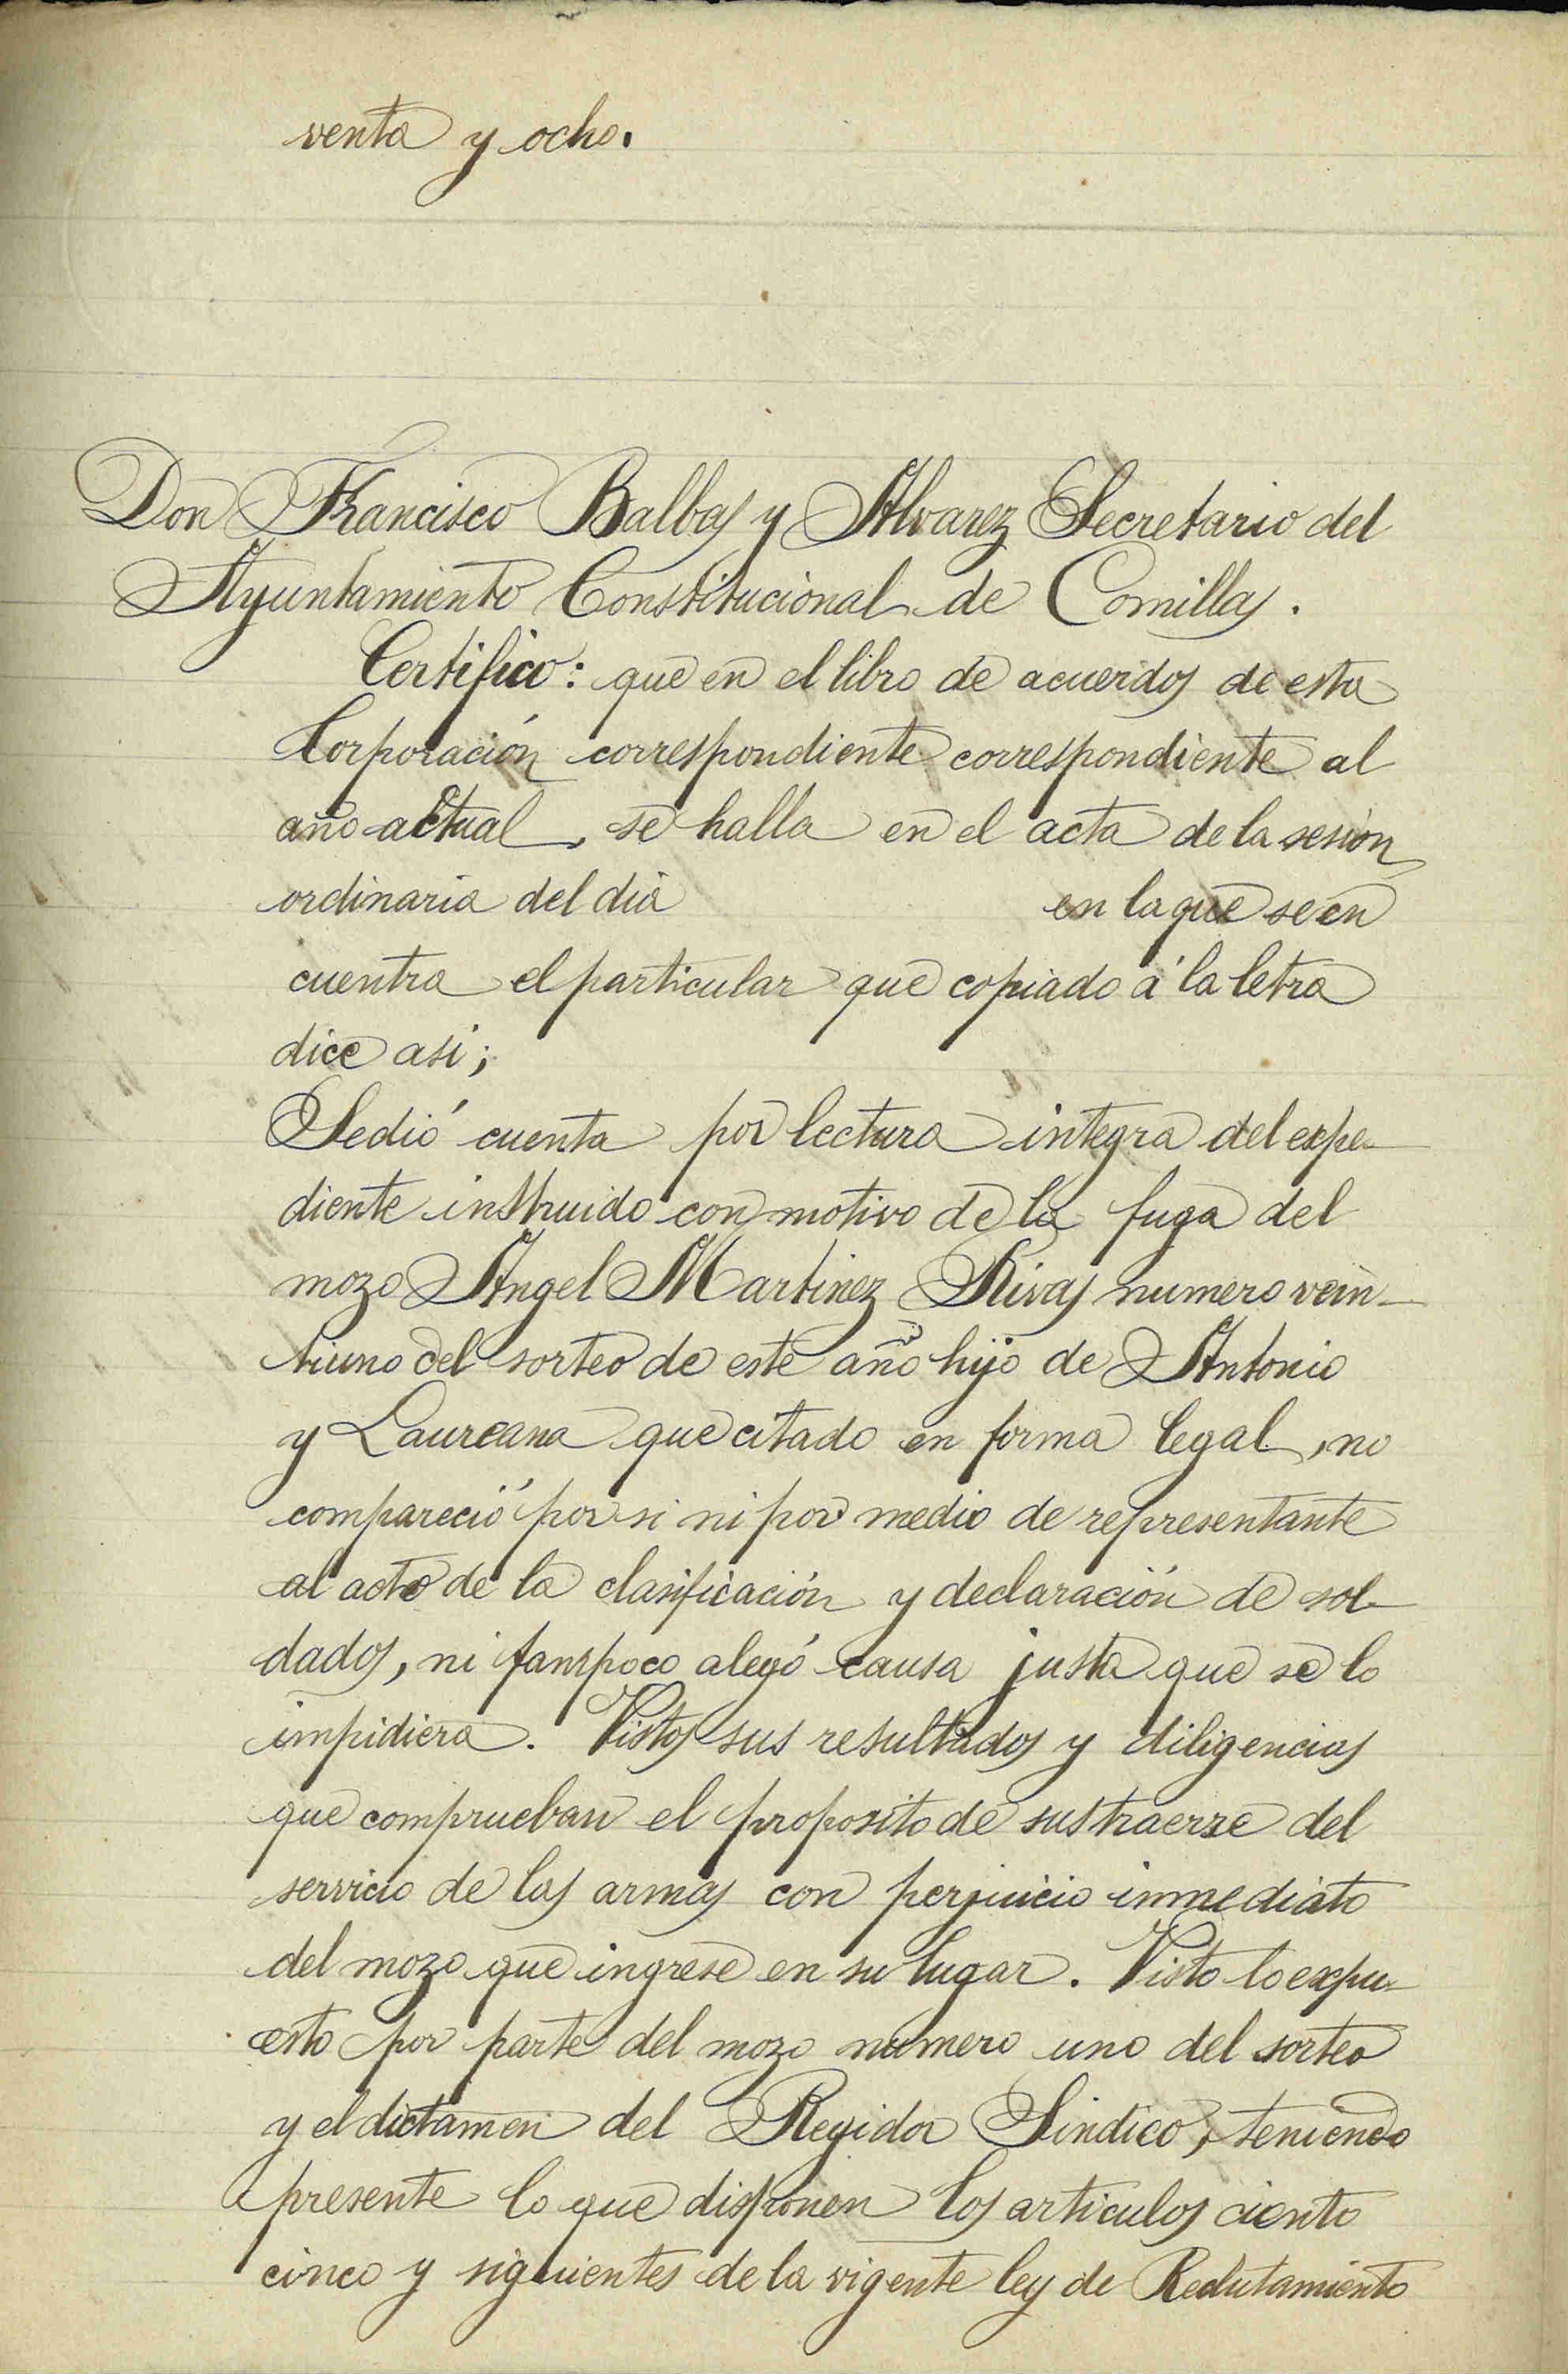 venta y ocho.
Don Francisco Balbas y Alvarez Secretario del
Ayuntamiento Constitucional de Comillas.
Certifico: que en el libro de acuerdos de esta
Corporación correspondiente correspondiente al
año actual, se halla en el acta de la sesión
ordinaria del dia en la que se en
cuentra el particular que copiado á la letra
dice asi;
Se dió cuenta por lectura integra del expe-
diente instruido con motivo de la fuga del
mozo Angel Martinez Rivas numero vein-
tiuno del sorteo de este año hijo de Antonio
y Laureana que citado en forma legal, no
compareció por si ni por medio de representante
al acto de la clasificación y declaración de sol-
dados, ni tampoco alegó causa justa que se lo
impidiera. Vistos sus resultados y diligencias
que comprueban el proposito de sustraerse del
servicio de las armas con perjuicio inmediato
del mozo que ingrese en su lugar. Visto lo expu-
esto por parte del mozo numero uno del sorteo
y el dictamen del Regidor Sindico, teniendo
presente lo que disponen los articulos ciento
cinco y siguientes de la vigente ley de Reclutamiento